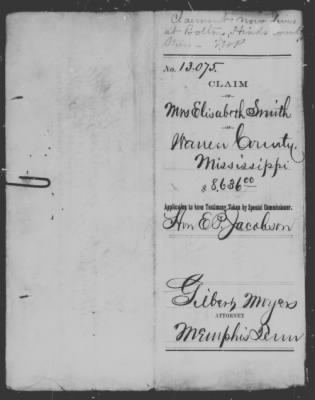 Claimant now lives
at Bolton, Hinds County
Miss
No. 13.075.
CLAIM
OF
Mrs Elisabeth Smith
OF
Warren County,
Mississippi
$ 8,636 00
Application to have Testimony Taken by Special Commissioner.
Hon E. P. Jacobson
Gilbert Moyers
ATTORNEY
Memphis Tenn